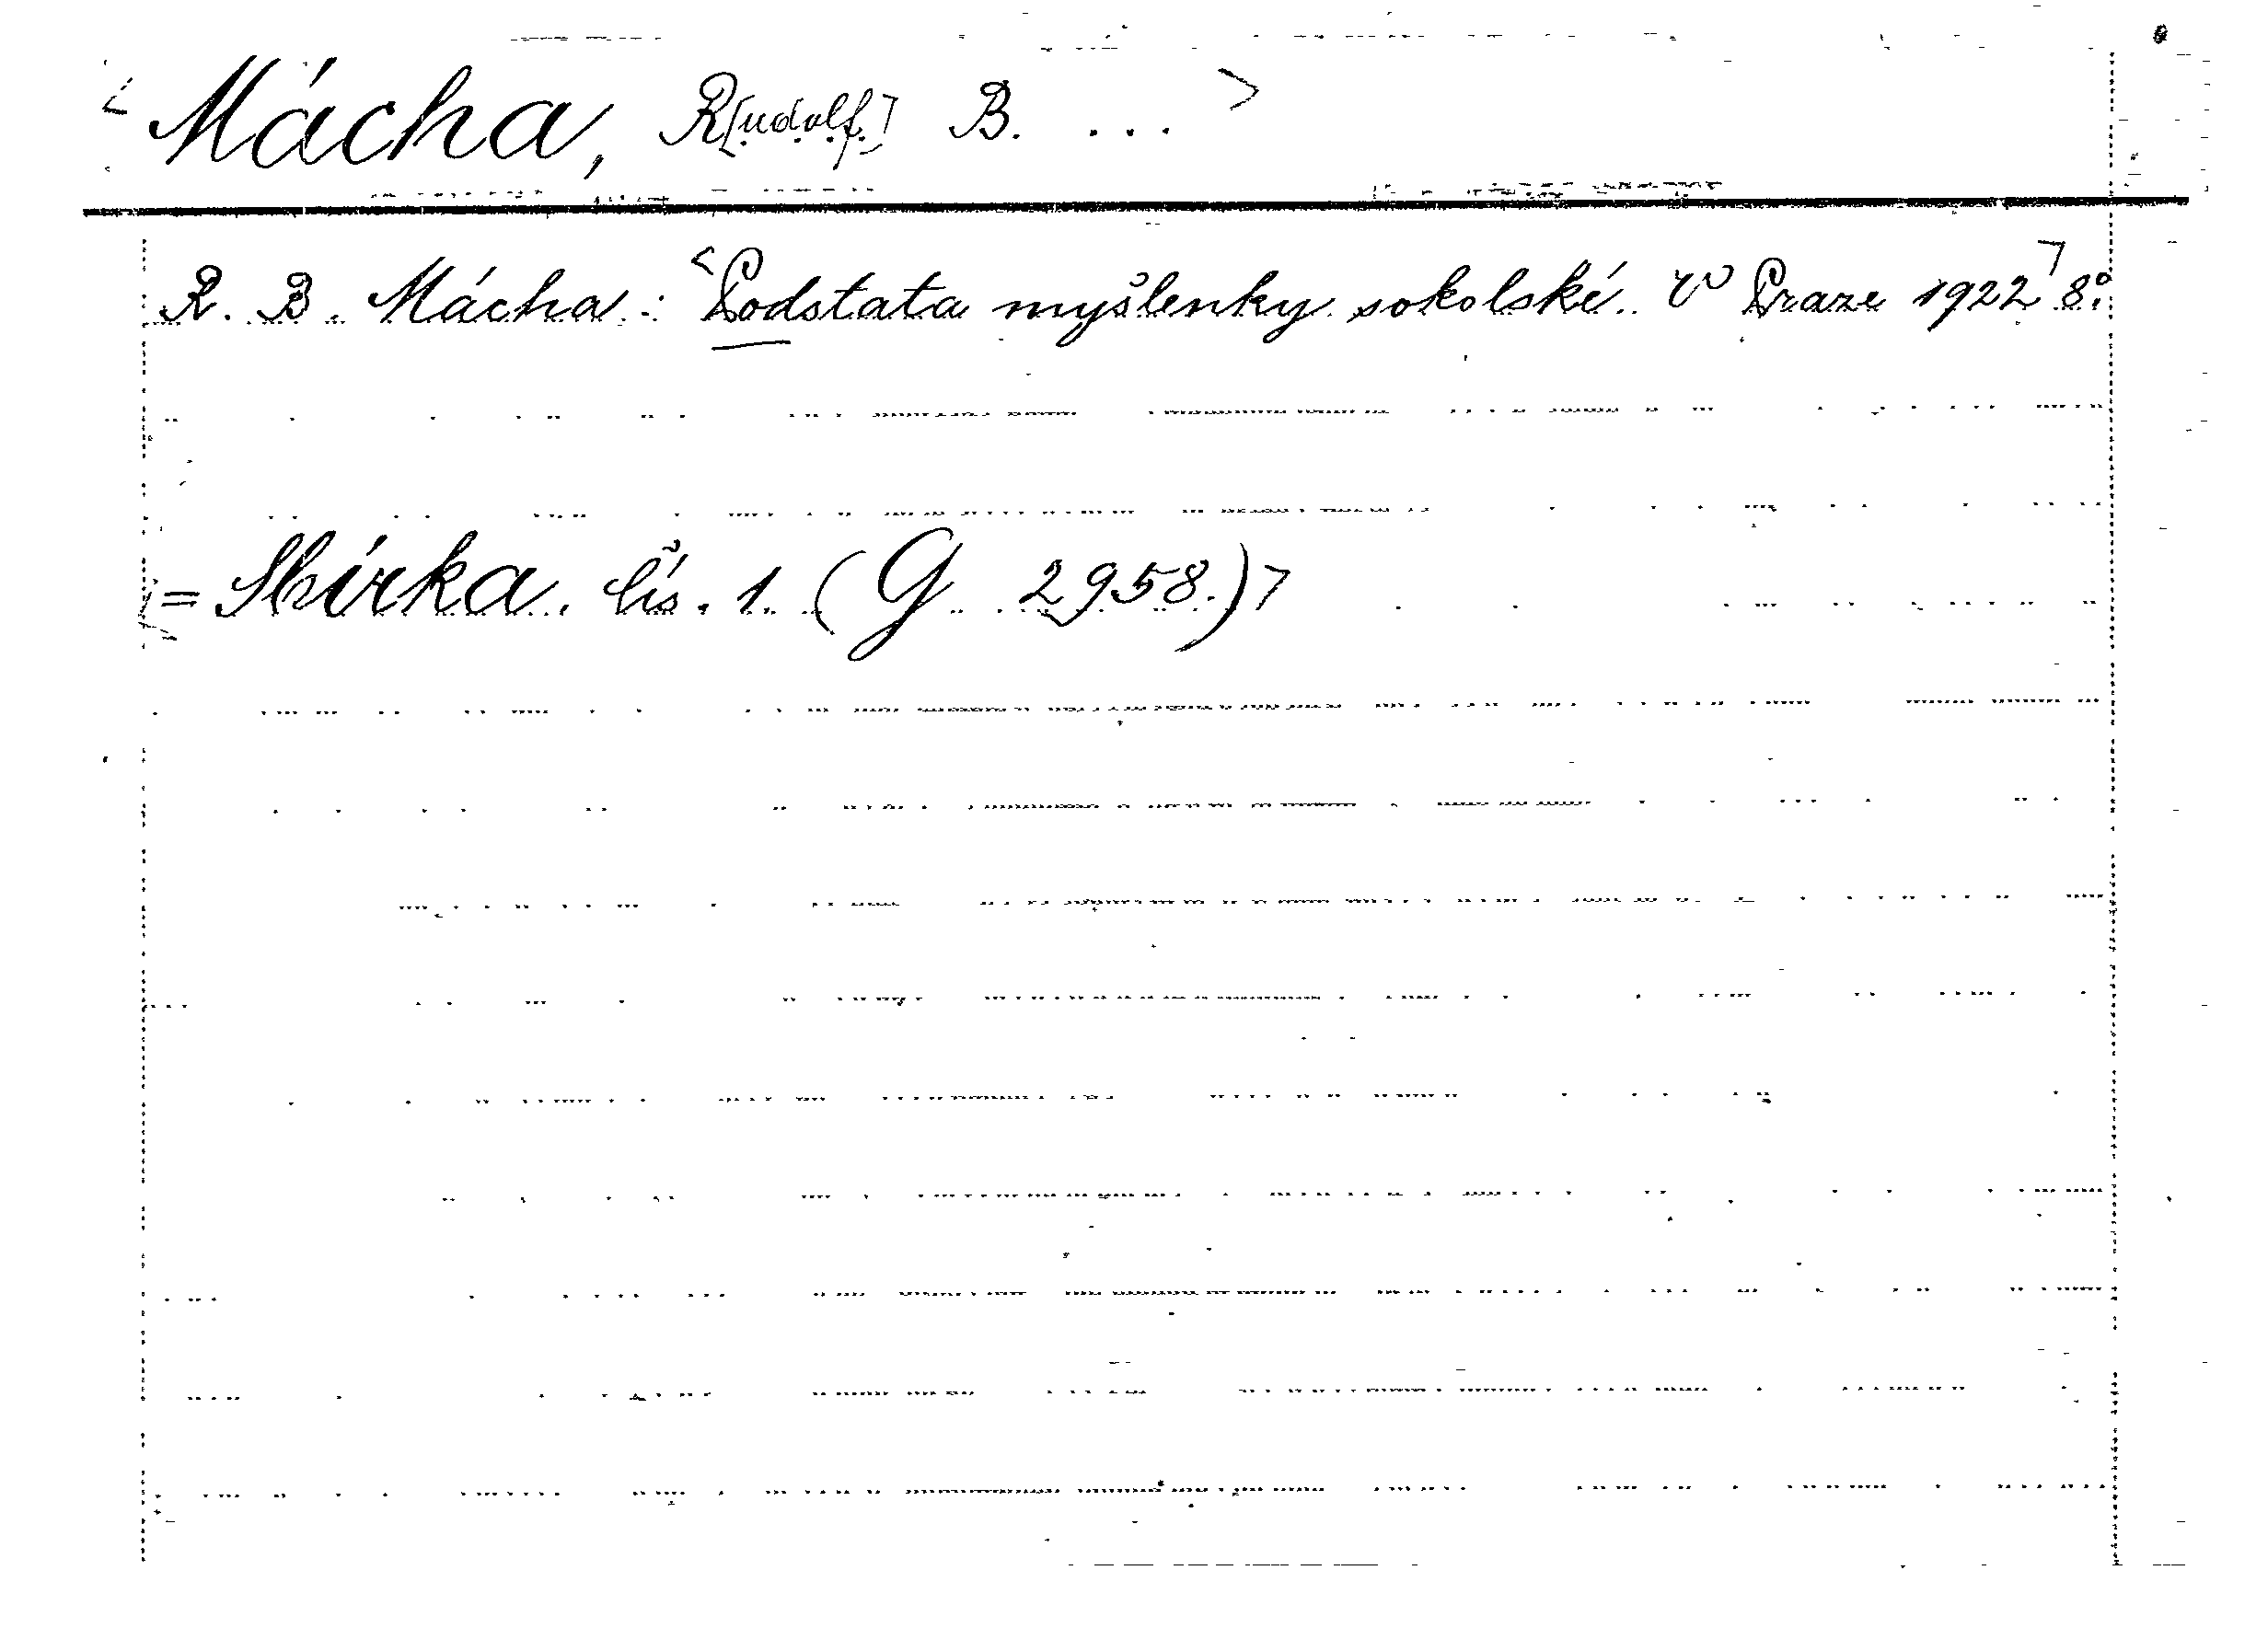 <Mácha, R[udolf] B. ...>
R. B. Mácha: <Podstata myšlenky sokolské. V Praze 1922> 8°.
<= Sbírka. čís. 1. (G 2958.)>